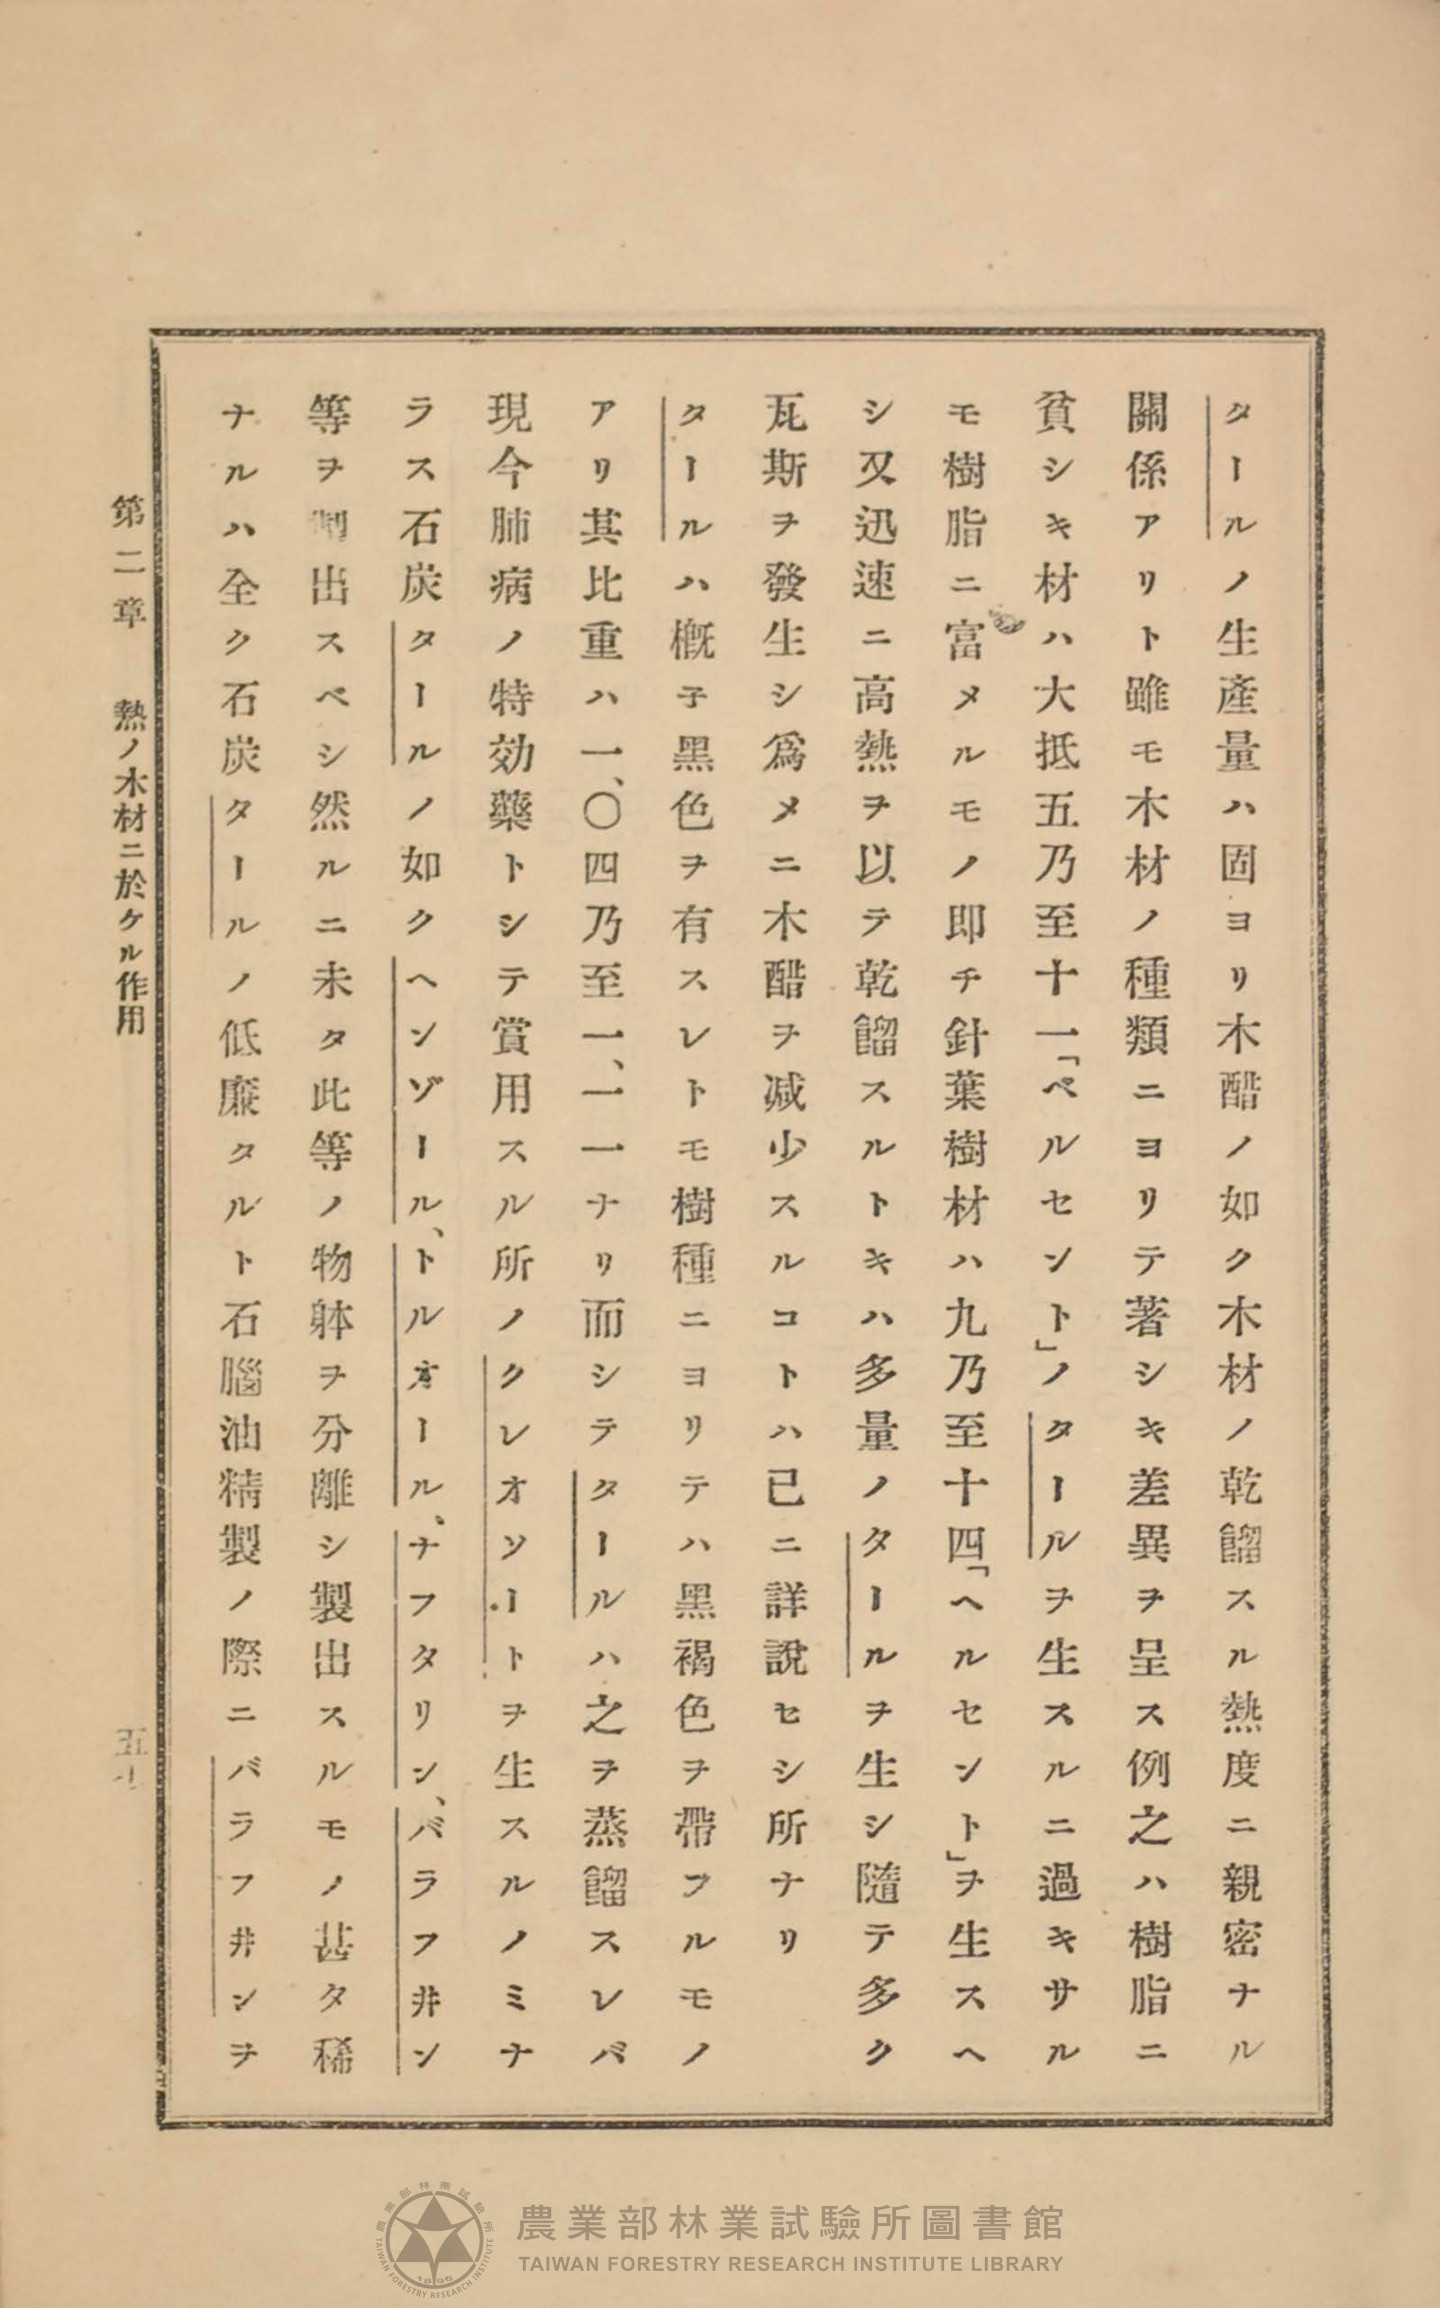 タールノ生產量ハ固ヨリ木醋ノ如ク木材ノ乾餾スル熱度ニ親密ナル
關係アリト雖モ木材ノ種類ニヨリテ著シキ差異ヲ呈ス例之ハ樹脂ニ
貧シキ材ハ大抵五乃至十一「ペルセント」ノタールヲ生スルニ過キサル
モ樹脂ニ富メルモノ即チ針葉樹材ハ九乃至十四「ヘルセント」ヲ生スヘ
シ又迅速ニ高熱ヲ以テ乾餾スルトキハ多量ノタールヲ生シ隨テ多ク
瓦斯ヲ發生シ爲メニ木醋ヲ减少スルコトハ已ニ詳說セシ所ナリ
タールハ槪子黑色ヲ有スレトモ樹種ニヨリテハ黑褐色ヲ帶フルモノ
アリ其比重ハ一、〇四乃至一、一一ナリ而シテタールハ之ヲ蒸餾スレバ
現今肺病ノ特効藥トシテ賞用スル所ノクレオソートヲ生スルノミナ
ラス石炭タールノ如クヘンゾール、トルオール、ナフタリン、バラフ井ン
等ヲ製出スベシ然ルニ未タ此等ノ物躰ヲ分離シ製出スルモノ甚タ稀
ナルハ全ク石炭タールノ低廉タルト石腦油精製ノ際ニバラフ井ンヲ
第二章 熱ノ木材ニ於ケル作用
五七
農業部林業試驗所圖書館
TAIWAN FORESTRY RESEARCH INSTITUTE LIBRARY
農業部林業試驗所
TAIWAN FORESTRY RESEARCH INSTITUTE
1896